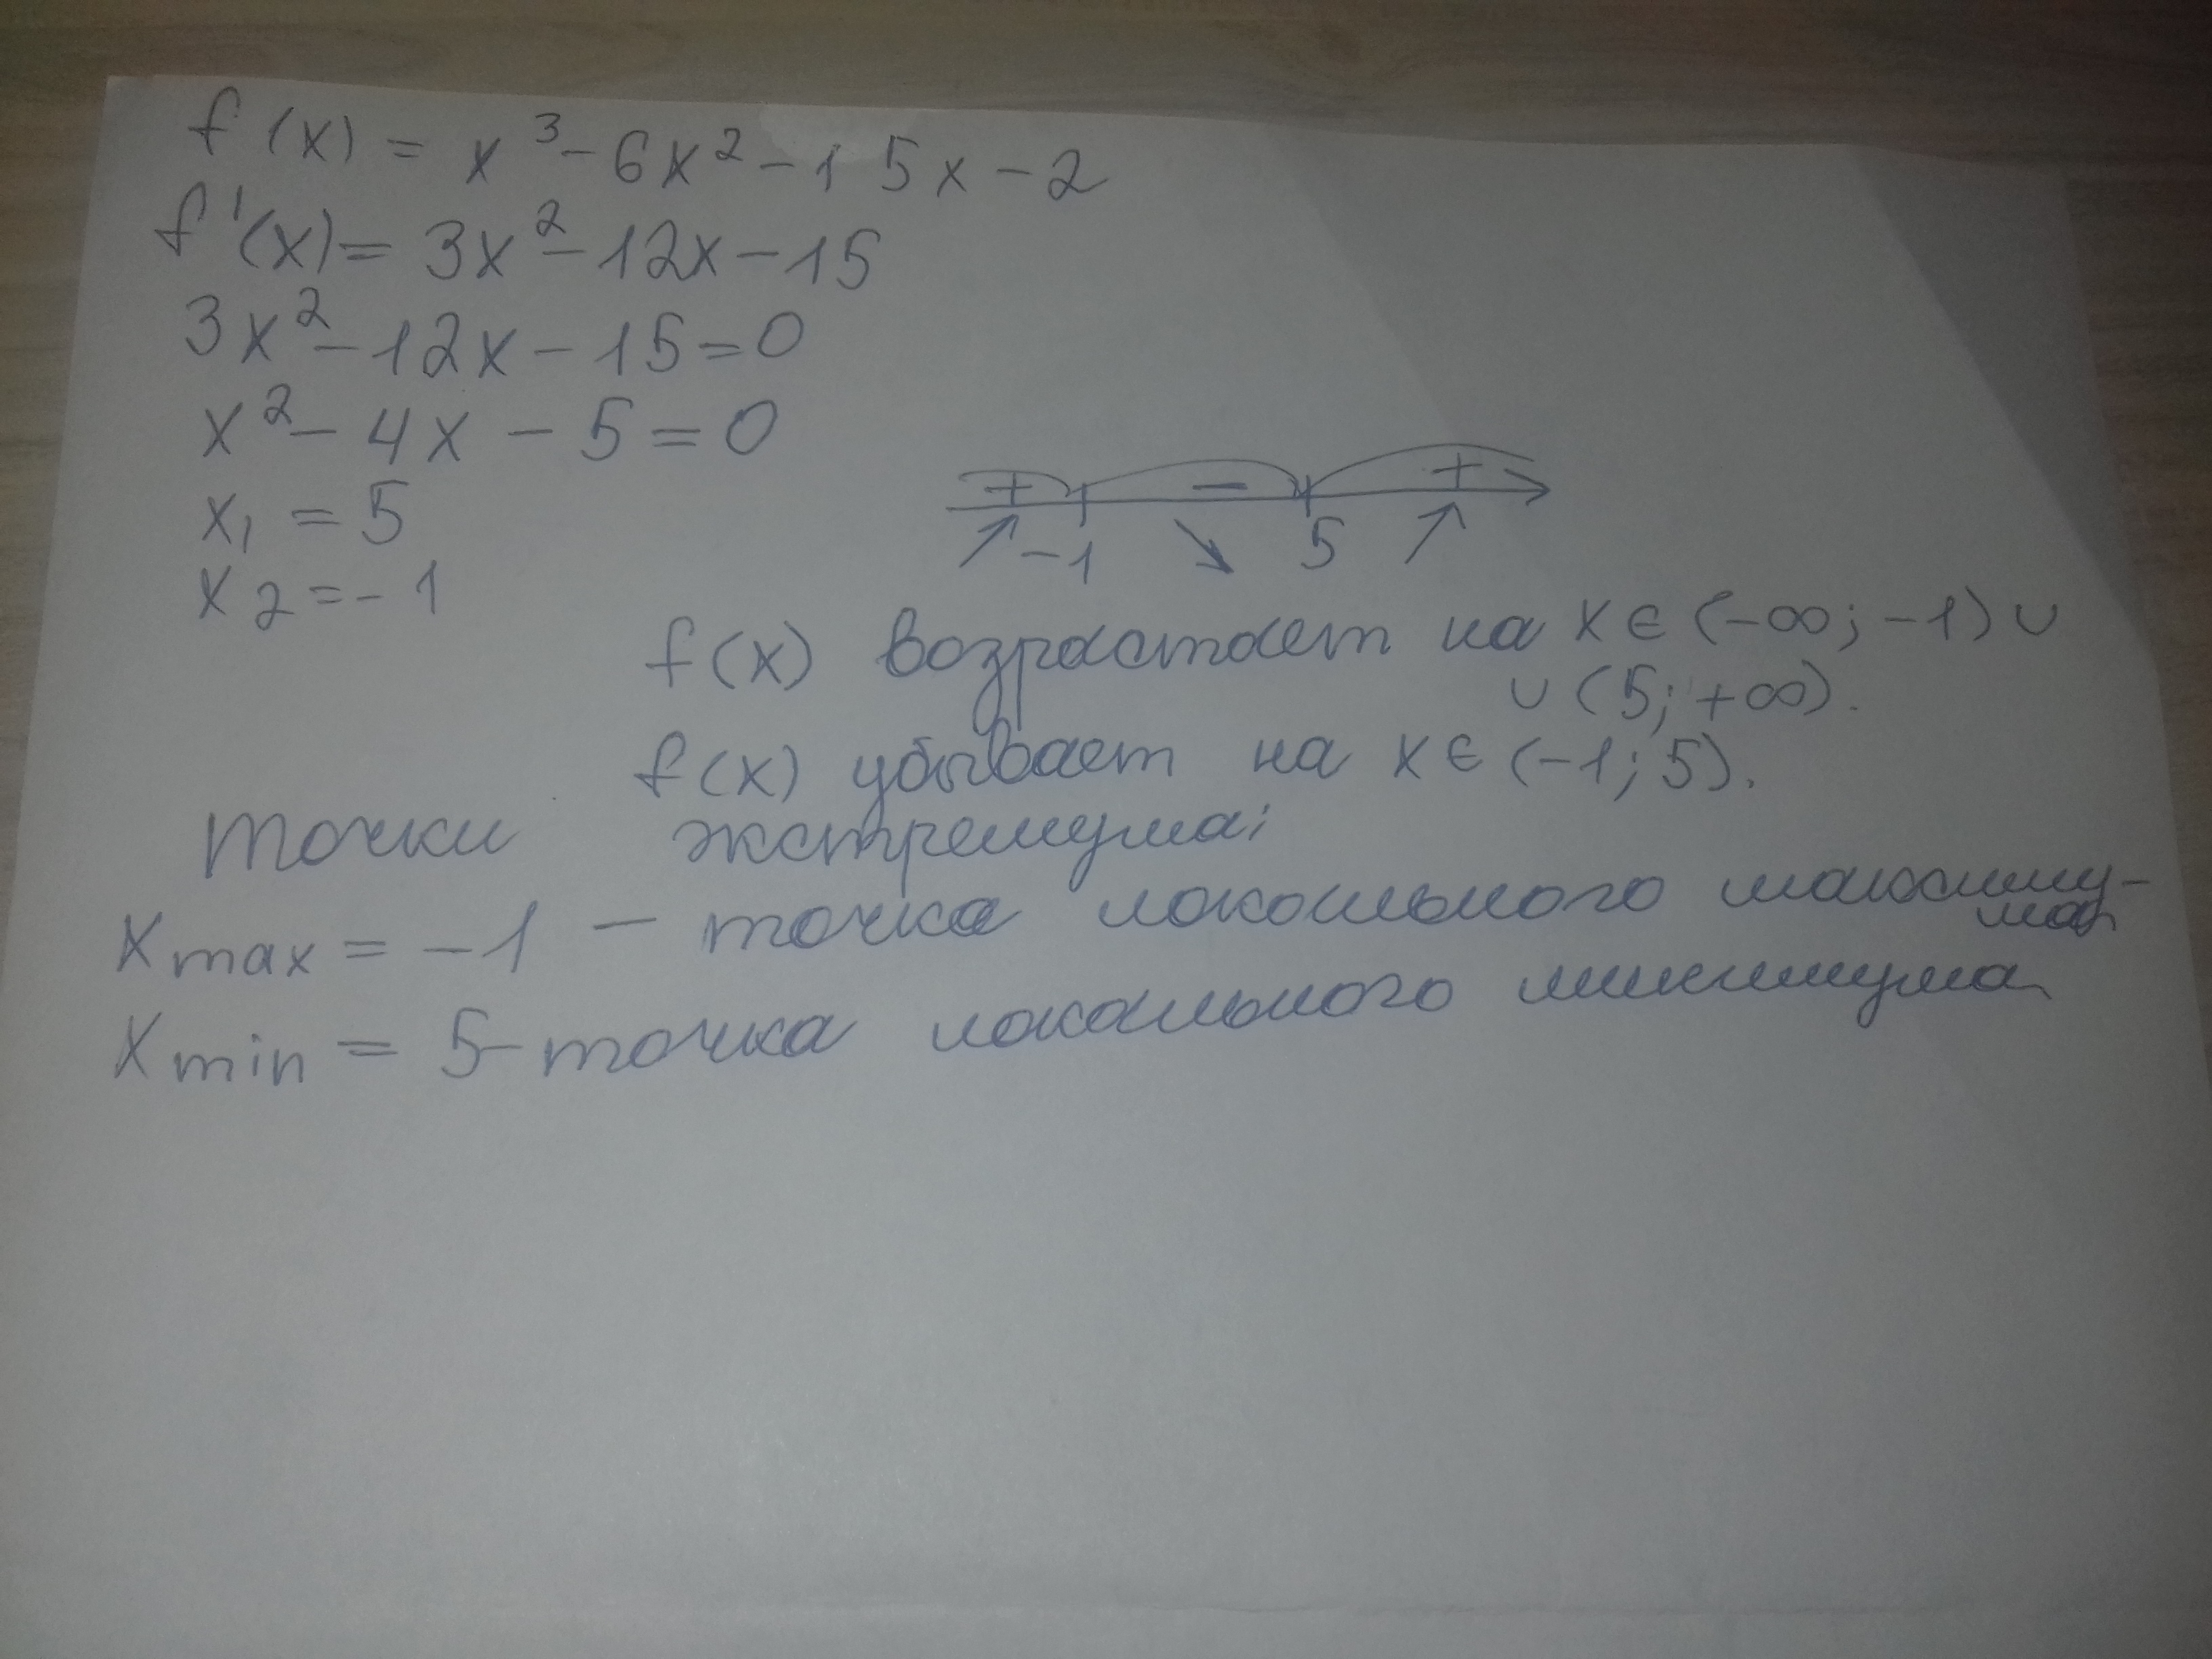 f(x) = x³ - 6x² - 15x - 2
f'(x) = 3x² - 12x - 15
3x² - 12x - 15 = 0
x² - 4x - 5 = 0
x₁ = 5
x₂ = -1
+ - +
-1 5
f(x) возрастает на x ∈ (-∞; -1) ∪
∪ (5; +∞).
f(x) убывает на x ∈ (-1; 5).
Точки экстремума:
x max = -1 — точка локального максиму-
ма
x min = 5 - точка локального минимума